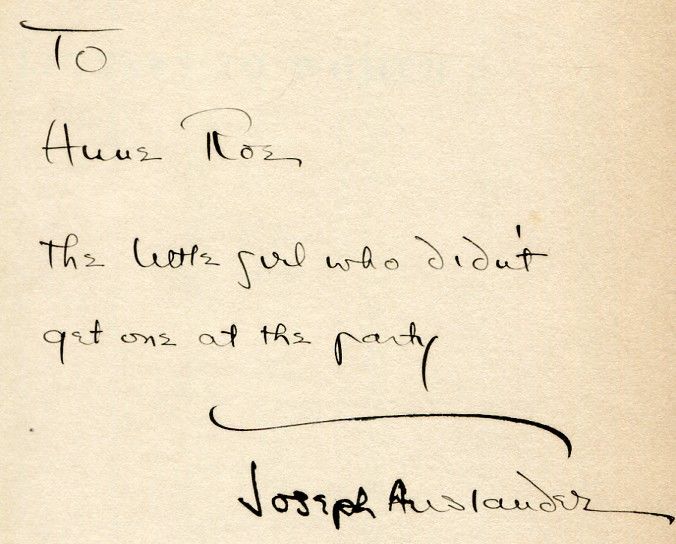 To
Anne Roe
the little girl who didn't
get one at the party
Joseph Auslander